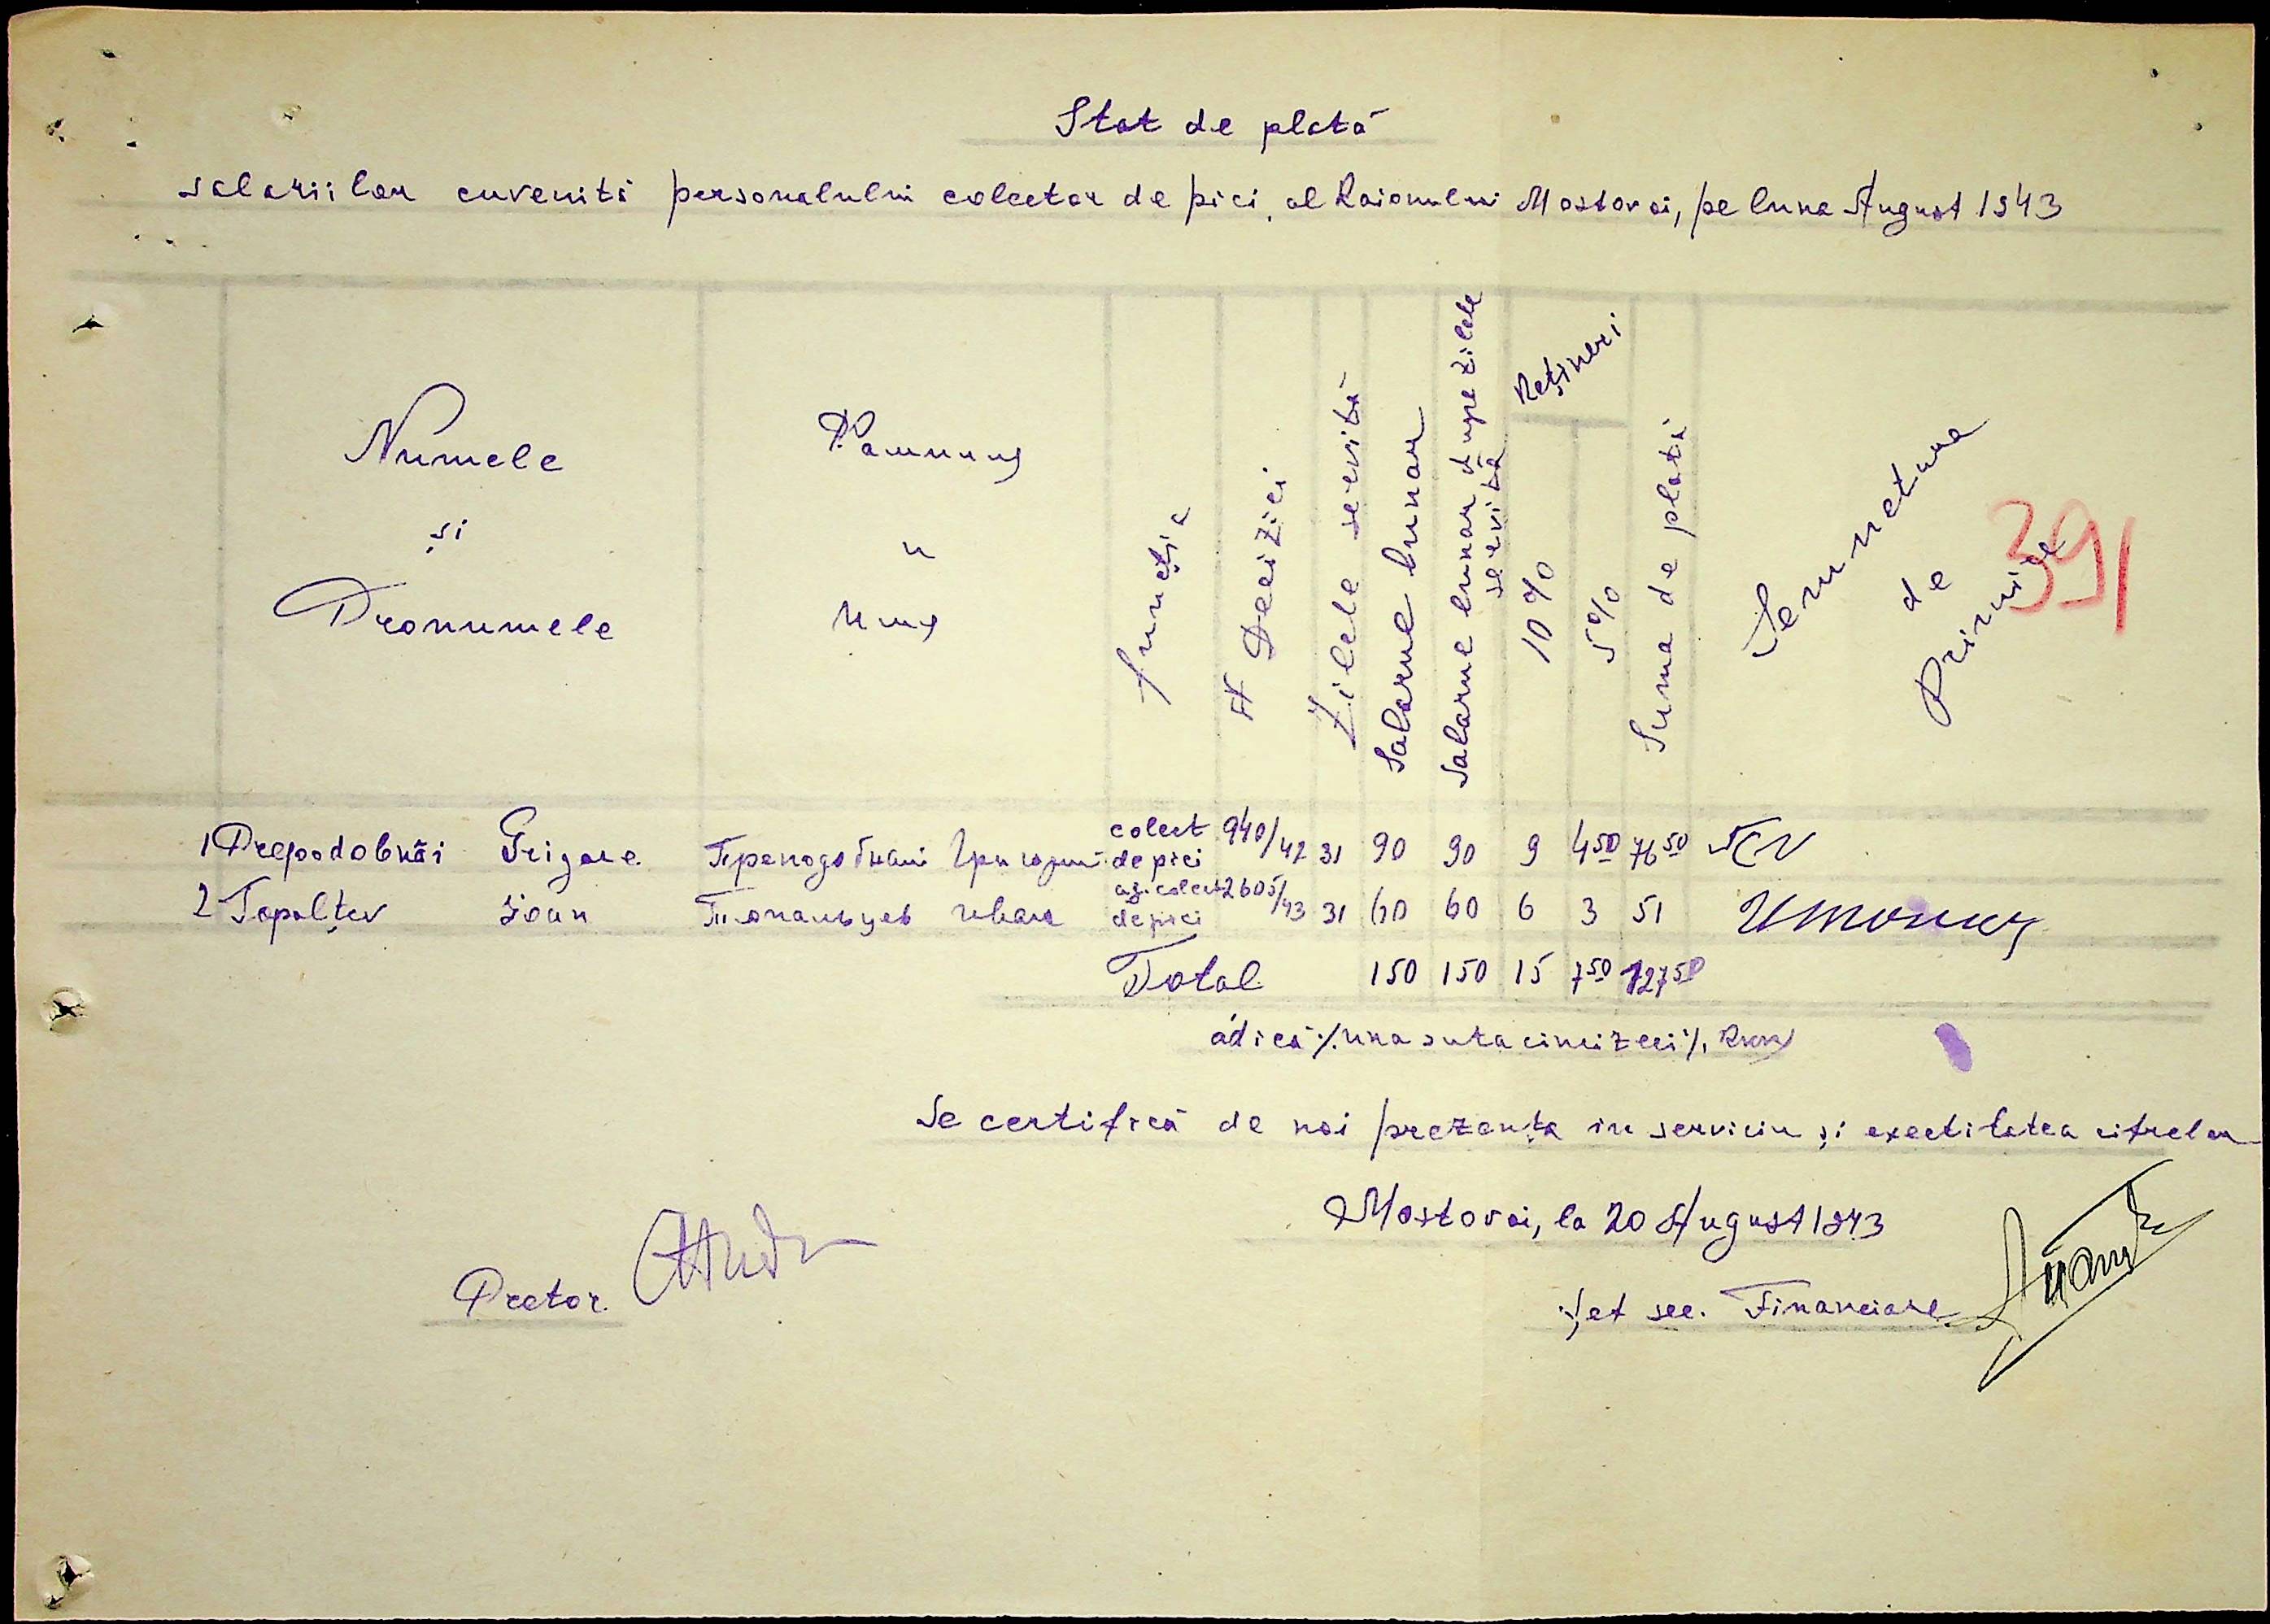 Stat de plată
salariilor cuvenită personalului colector de piei, al Raionului Mostovoi, pe luna August 1943
Numele și Pronumele
Фамилия и Имя
funcția
№ Deciziei
Zilele servită
Salarue lunar
Salarue lunar dupe zilele servită
Rețineri
10%
5%
Suma de plată
Semnetura de Primire
391
1 Prepodobnâi Grigore Преподобный Григорий colect de piei 940/42 31 90 90 9 4 50 76 50
2 Topalțev Ioan Топальцев Иван aj. colect de piei 2605/43 31 60 60 6 3 51
Total 150 150 15 7 50 127 50
adică ٪ una suta cincizeci ٪.
Se certifică de noi prezența in serviciu și exectitatea cifrelor
Mostovoi, la 20 August 1943
Pretor.
Șef sec. Financiare